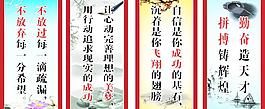 勤奋造天才
拼搏铸辉煌
自信是你成功的基石
沉着是你飞翔的翅膀
让心动完善理想的美梦
用行动追求现实的成功
不放过每一滴疏漏
不放弃每一分希望